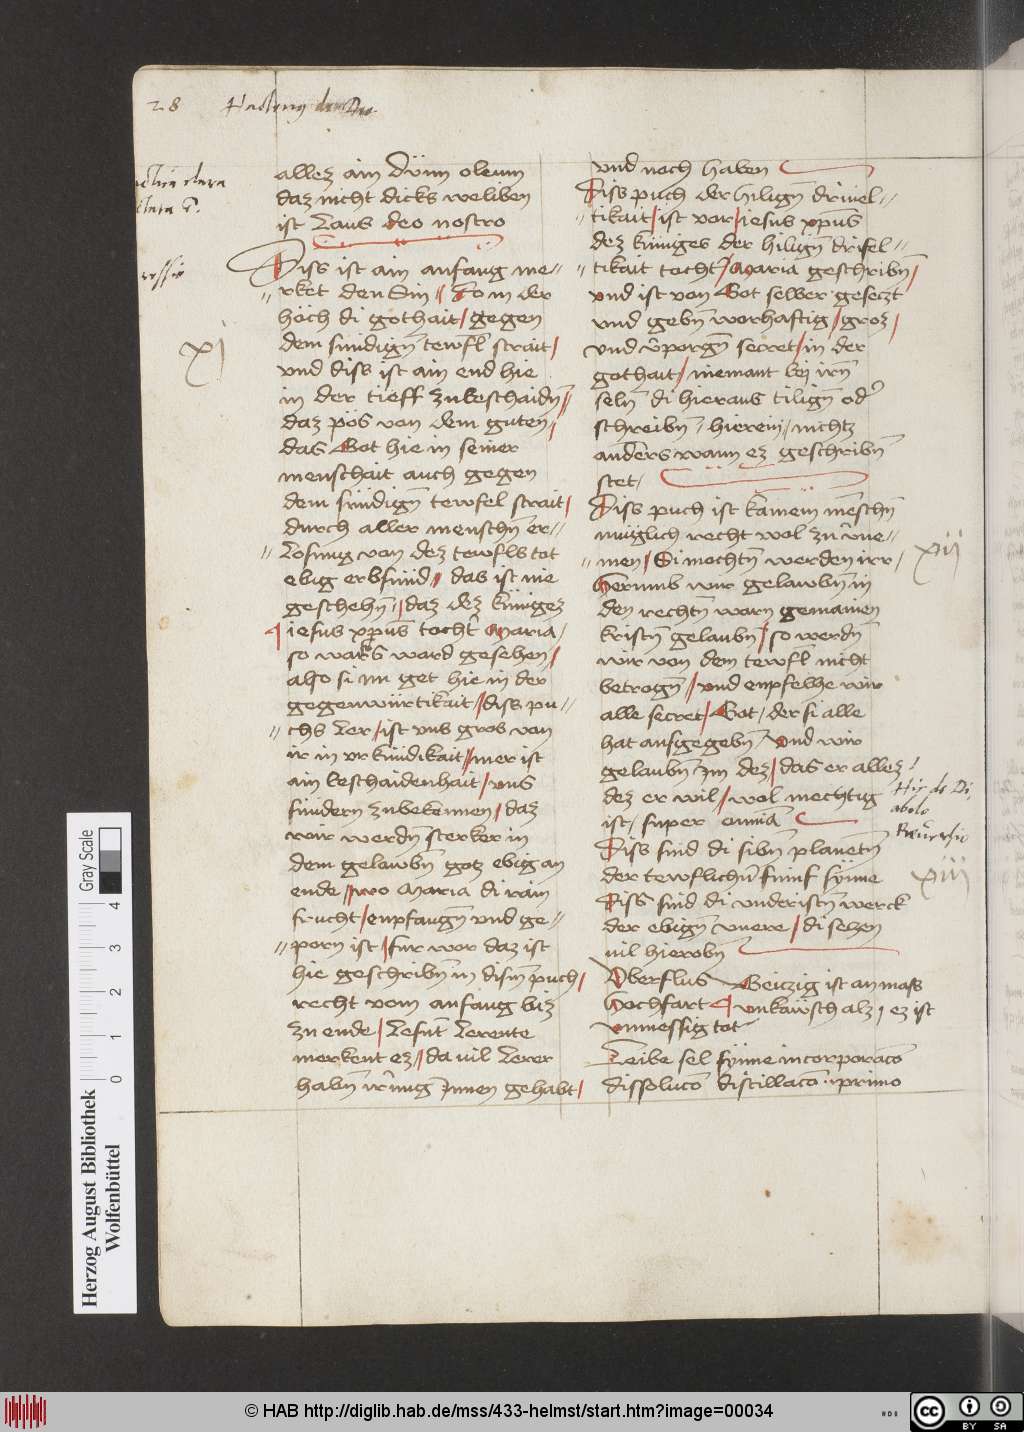 28
allez ain dünn oleum
daz nicht dicks weliben
ist Laus deo nostro
Diss ist ain anfang me//
//rket den Sin // So in der
höch di gothait / gegen
dem sündign̄ tewfl strait /
vnd diss ist ain end hie
in der tieff zubeschaidn̄ //
daz pös von dem guten /
das Got hie in seiner
menschait auch gegen
dem sündign̄ tewfel strait /
durch aller menschn̄ er//
//losung von dez tewfls tot
ebig erbsünd // das ist nie
geschehn̄ / daz dez küniges
¶ iesus xp̄us tocht' Maria /
so warhs ward gesehen /
also si im get hie in der
gegenwürtikait // diss pu//
//chs Ler / ist vns gros von
ir in vrkündikait // mer ist
ain beschaidenhait / vns
sündern zubekennen / daz
wir werdn̄ sterker in
dem gelawbn̄ gotz ebig an
ende // wo Maria di rain
frucht / enpfangn̄ vnd ge//
//porn ist / für wor daz ist
hie geschribn̄ in dism̄ puch /
recht vom anfang biz
zu ende / Lesn̄t Lerente
merkent ez // da uil Lerer
habn̄ irūng Jnnen gehabt /
vnd noch haben
Diss puch der hilign̄ driuel//
//tikait / ist vor / iesus xp̄us
dez küniges der hilign̄ drifel//
//tikait tocht' / Maria geschribn̄ /
vnd ist von Got selber gesetzt
vnd gebn̄ worhaftig / groz /
vnd v̄porgn̄ secret / in der
gothait / niemant bej irn̄
seln̄ di hieraus tilign̄ od'
schreibn̄ / hierein / nichtz
anders wann ez geschribn̄
stet /
Diss puch ist kainem mēschn̄
müglich recht wol zu v̄ne//
//men / Si mochtn̄ werden irr /
Herumb wir gelawbn̄ in
den rechtn̄ warn gemainen
kristn̄ gelaubn̄ / so werdn̄
wir von dem tewfl nicht
betrogn̄ // vnd enpfelhe wir
alle secret / Got / der si alle
hat ausgegebn̄ / Vnd wir
gelaubn̄ Jm dez / das er allez
dez er wil / wol mechtig
ist / super omnia
Diss sind di sibn̄ planetn̄
der tewflichn̄ fünf synne
Diss sind di vnderistn̄ werck
der ebign̄ vnere / di selzen
uil hierobn̄
Vberflus Geiczig ist an mass
Hochfart ¶ vnkawsch alz / ez ist
vnmessig tot
Leibe sel synne incorporacō
dissolucō distillacō primo
xj
xij
Hir de Di
abolo
xiij
Herzog August Bibliothek
Wolfenbüttel
Gray Scale
0 1 2 3 4
© HAB http://diglib.hab.de/mss/433-helmst/start.htm?image=00034
HAB
cc BY SA